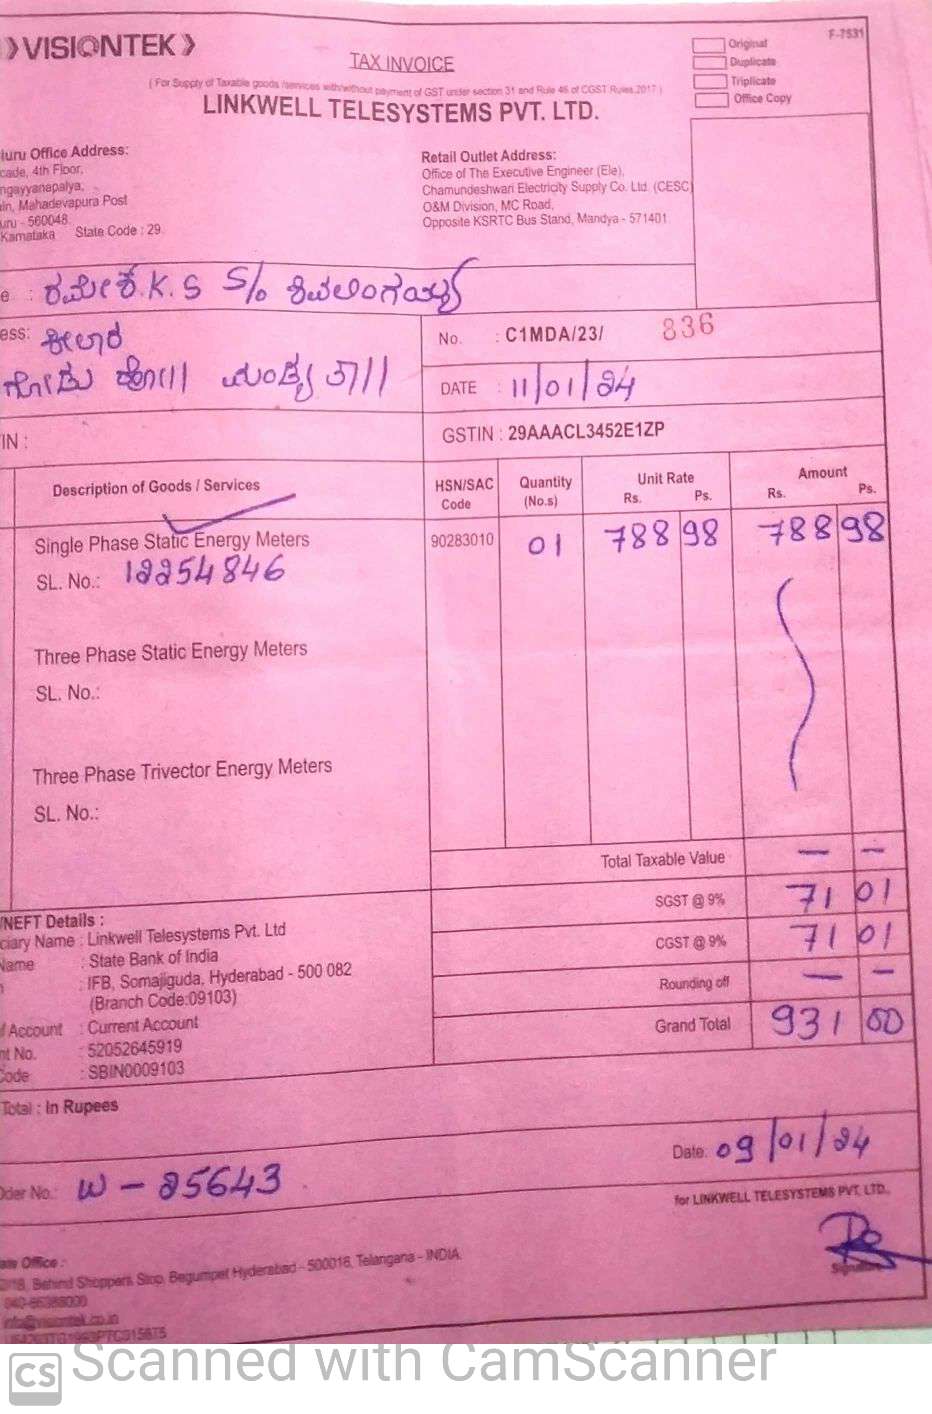 VISIONTEK
F-7531
TAX INVOICE
Original
Duplicate
Triplicate
Office Copy
( For Supply of Taxable goods /services with/without payment of GST under section 31 and Rule 46 of CGST Rules,2017 )
LINKWELL TELESYSTEMS PVT. LTD.
luru Office Address:
cade, 4th Floor,
ngayyanapalya,
in, Mahadevapura Post
uru - 560048
Karnataka State Code : 29
Retail Outlet Address:
Office of The Executive Engineer (Ele),
Chamundeshwari Electricity Supply Co. Ltd. (CESC)
O&M Division, MC Road,
Opposite KSRTC Bus Stand, Mandya - 571401
e : ರಮೇಶ.K.S S/o ಶಿವಲಿಂಗಯ್ಯ
ess: ಕೀಲಾರ
ಹೋ|| ಮಂಡ್ಯ ತಾ||
No. : C1MDA/23/ 836
DATE : 11/01/24
IN :
GSTIN : 29AAACL3452E1ZP
Description of Goods / Services
HSN/SAC Code
Quantity (No.s)
Unit Rate Rs. Ps.
Amount Rs. Ps.
Single Phase Static Energy Meters 90283010 01 788 98 788 98
SL. No.: 12254846
Three Phase Static Energy Meters
SL. No.:
Three Phase Trivector Energy Meters
SL. No.:
Total Taxable Value — —
SGST @ 9% 71 01
CGST @ 9% 71 01
Rounding off — —
Grand Total 931 00
/NEFT Details :
ciary Name : Linkwell Telesystems Pvt. Ltd
Name : State Bank of India
: IFB, Somajiguda, Hyderabad - 500 082
(Branch Code:09103)
f Account : Current Account
nt No. : 52052645919
Code : SBIN0009103
Total : In Rupees
Date: 09/01/24
Order No.: W - 25643
for LINKWELL TELESYSTEMS PVT. LTD.,
ate Office :
Behind Shoppers Stop, Begumpet Hyderabad - 500016, Telangana - INDIA
040-66388000
info@visiontek.co.in
Signature
CS Scanned with CamScanner